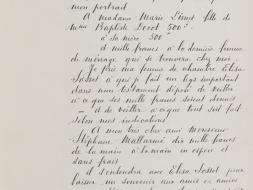 mon portrait
A madame Marie Limet fille de
Mme Baptiste Socet 500 f
à sa mère 500 f
et mille francs à la dernière femme
de ménage que se trouvera chez moi
Je prie ma femme de chambre Elisa
Sosset à qui je fait un legs important
dans mon testament déposé de veiller
à ce que ses mille francs soient donnés
et de veiller à ce que tout soit fait
selon mes indications
A mon bien cher ami Monsieur
Stéphane Mallarmé dix mille francs
de la main à la main en espèce et
sans frais
il s'entendra avec Elisa Sosset pour
laisser un souvenir aux amis ou amies